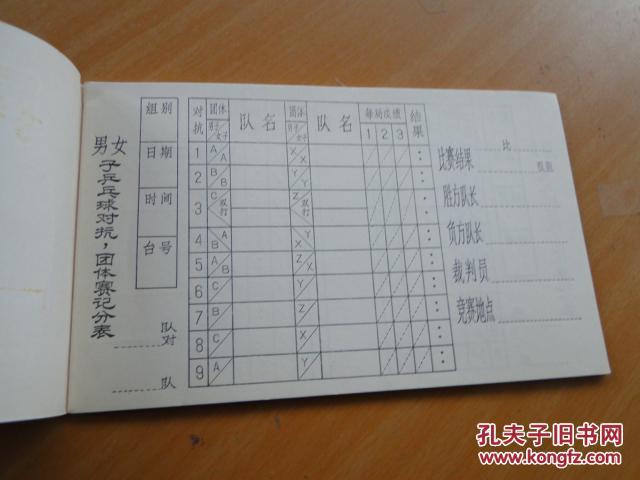 男女子乒乓球对抗，团体赛记分表
队对
队
组别
日期
时间
台号
对抗 团体 男子/女子 队名 团体 男子/女子 队名 每局成绩 1 2 3 结果
1 A/A X/X :
2 B/B Y/Y :
3 C/双打 Z/双打 :
4 B/A Y/X :
5 A/B Z/X :
6 C Y :
7 B Z :
8 C X :
9 A Y :
比赛结果 比
胜方队长
负方队长
裁判员
竞赛地点
孔夫子旧书网
www.kongfz.com